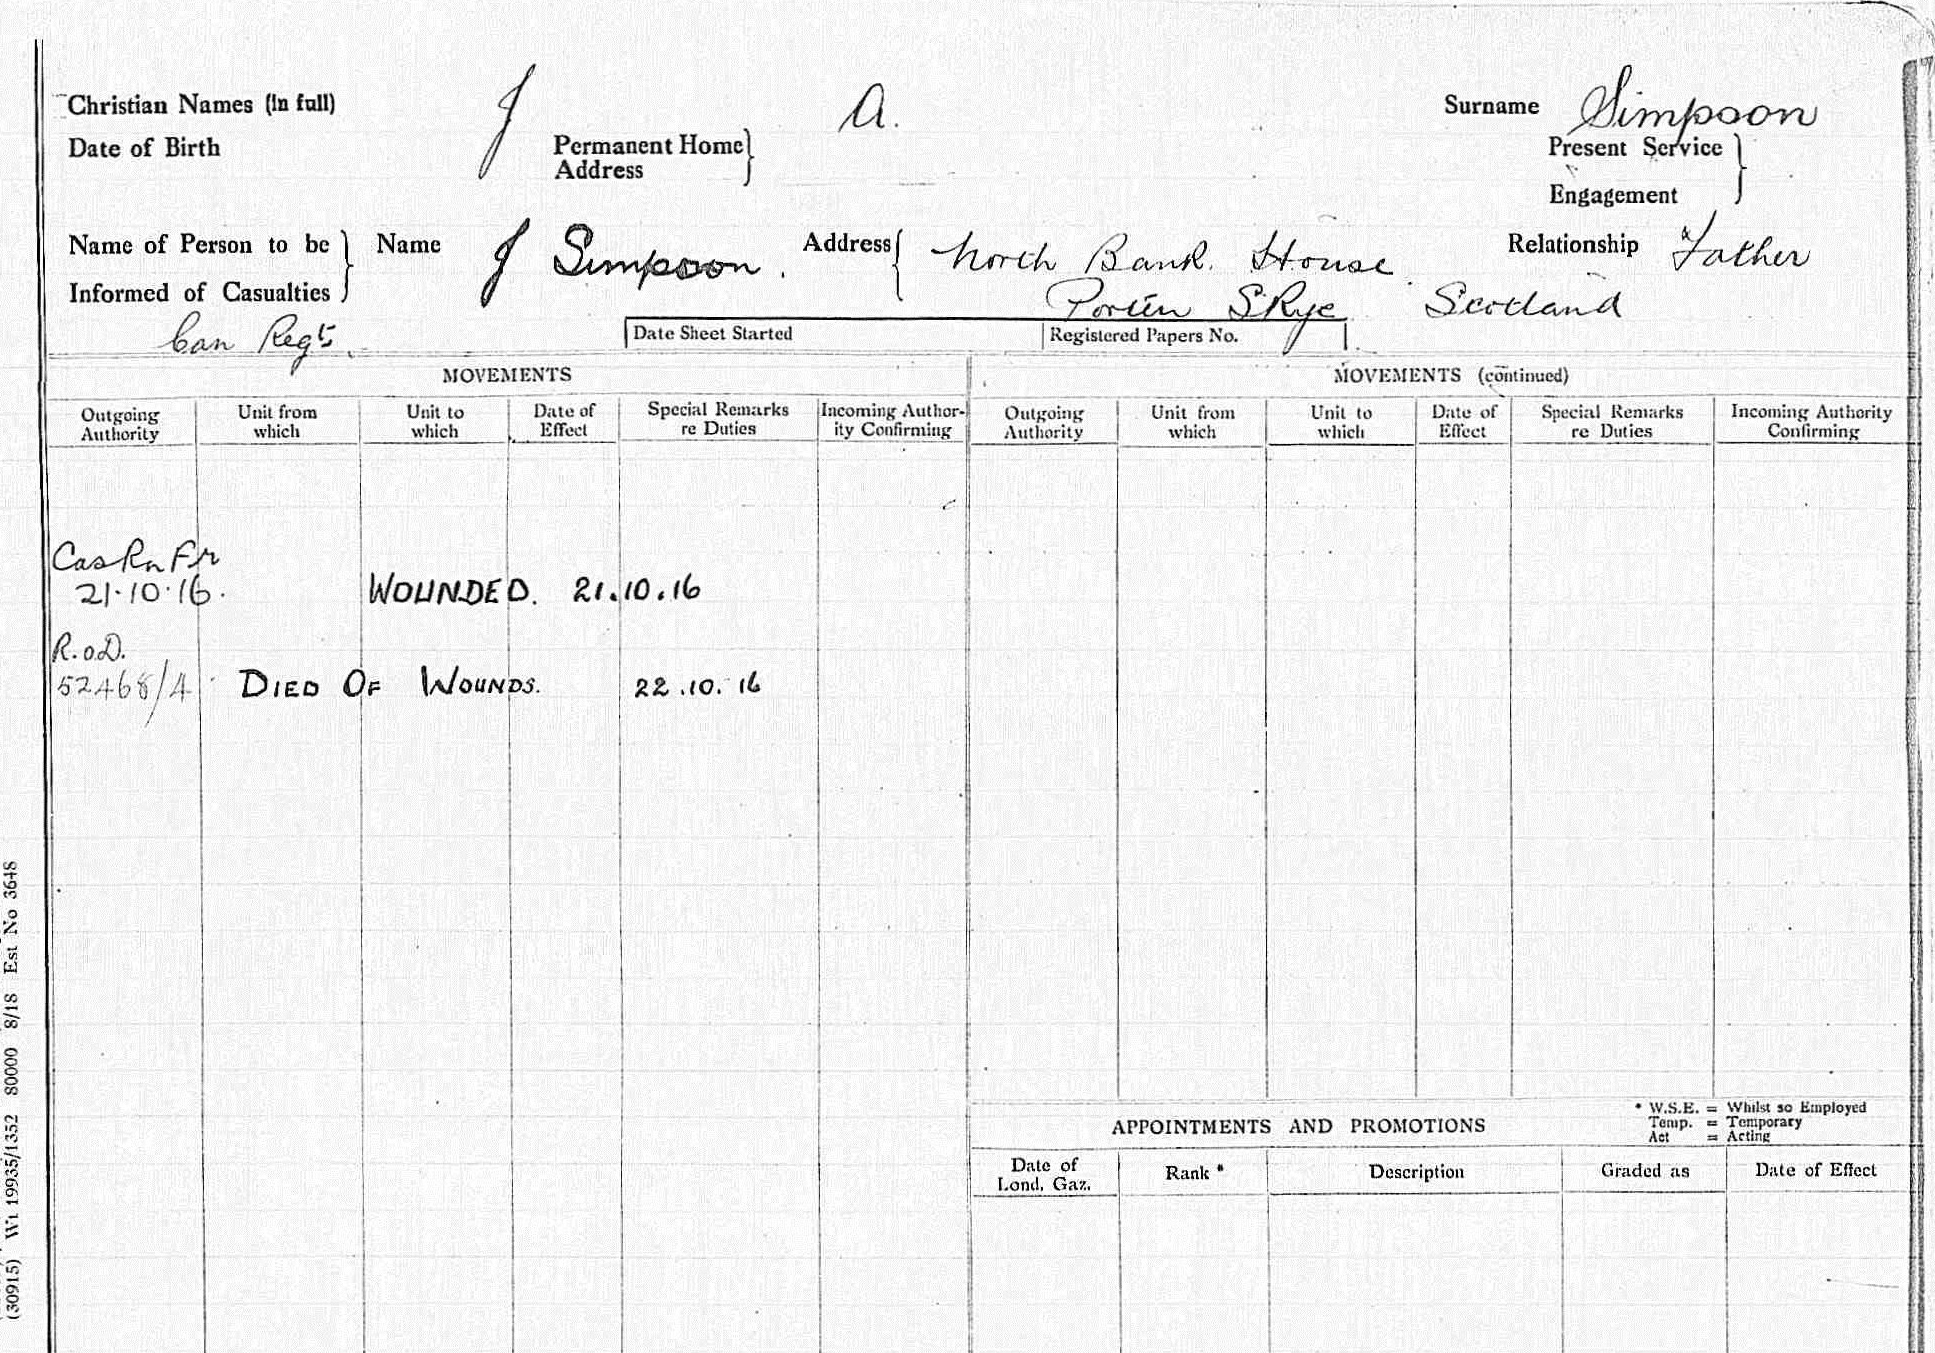 Christian Names (In full) J A. Surname Simpson
Date of Birth Permanent Home Address Present Service Engagement
Name of Person to be Informed of Casualties Name J Simpson. Address North Bank. House Relationship Father
Portin Skye Scotland
Can Regt.
Date Sheet Started Registered Papers No.
MOVEMENTS
Outgoing Authority Unit from which Unit to which Date of Effect Special Remarks re Duties Incoming Author-ity Confirming
Cas Rn Fr
21.10.16. WOUNDED. 21.10.16
R.o.D.
52468/4 DIED OF WOUNDS. 22.10.16
MOVEMENTS (continued)
Outgoing Authority Unit from which Unit to which Date of Effect Special Remarks re Duties Incoming Authority Confirming
APPOINTMENTS AND PROMOTIONS
* W.S.E. = Whilst so Employed
Temp. = Temporary
Act = Acting
Date of Lond. Gaz. Rank * Description Graded as Date of Effect
(30915) Wt 19935/1352 80000 8/18 Est No 3648